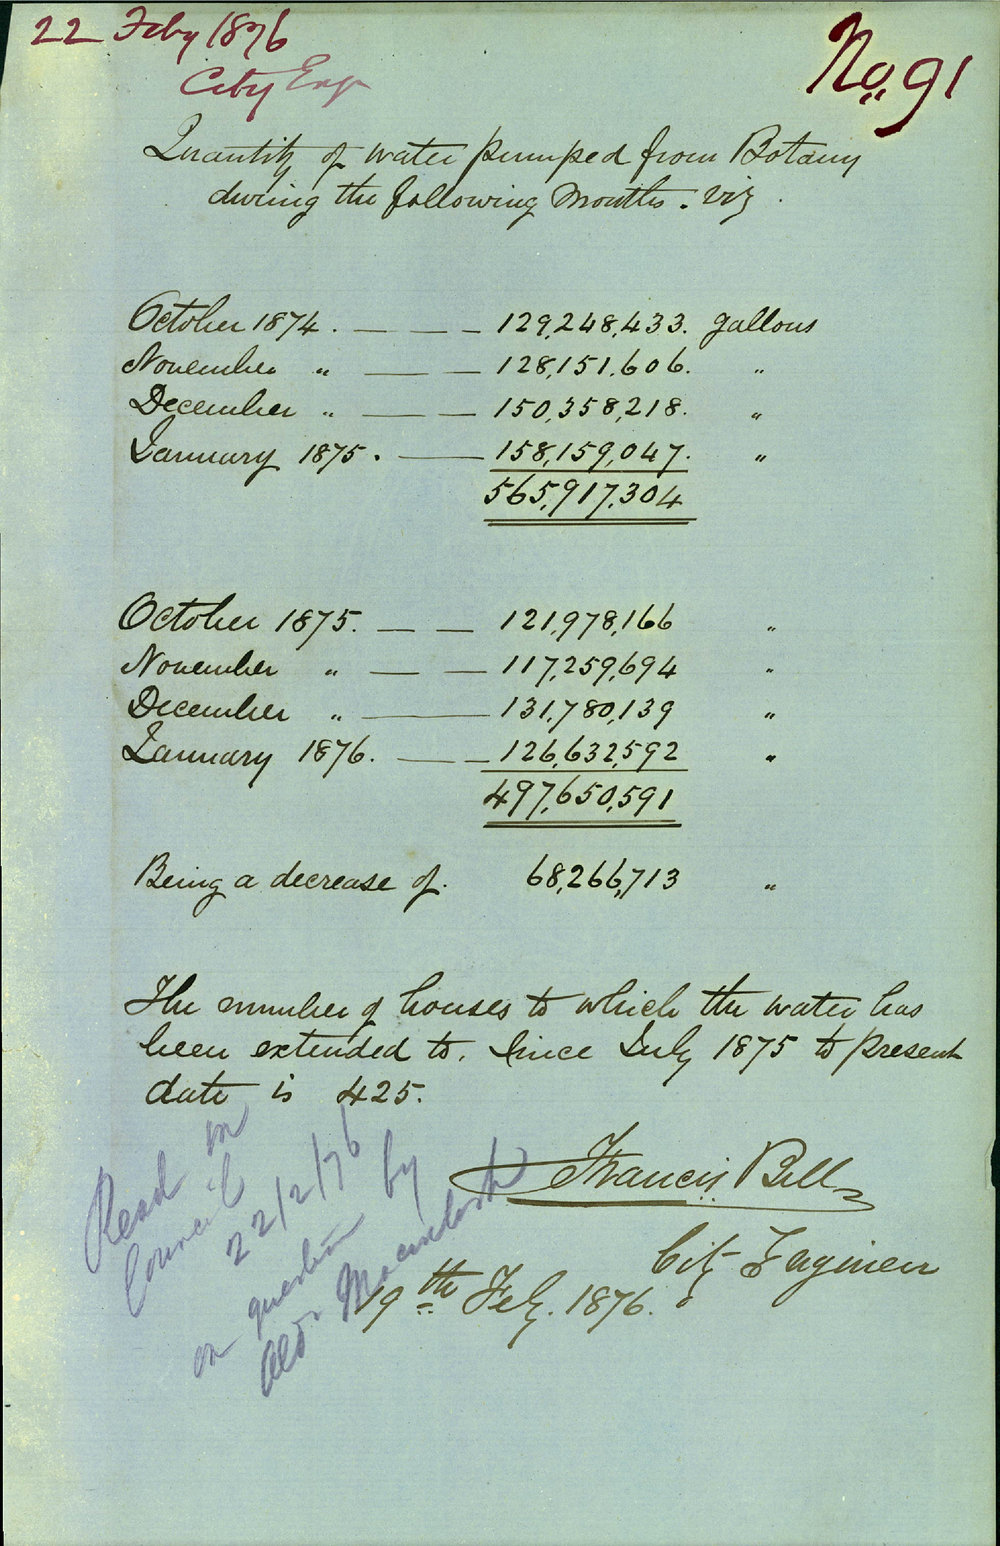 22 Feby 1876
City Engr
No 91
Quantity of water pumped from Botany
during the following months. viz
October 1874. — — — 129,248,433. gallons
November " — — 128,151,606. "
December " — — 150,358,218. "
January 1875. — 158,159,047. "
565,917,304
October 1875. — — 121,978,166 "
November " — — 117,259,694 "
December " — 131,780,139 "
January 1876. — — 126,632,592 "
497,650,591
Being a decrease of. 68,266,713 "
The number of houses to which the water has
been extended to. Since July 1875 to present
date is 425.
Francis Bell
City Engineer
19th Feby. 1876.
Read in
Council
22/2/76
on question by
Ald. Macintosh